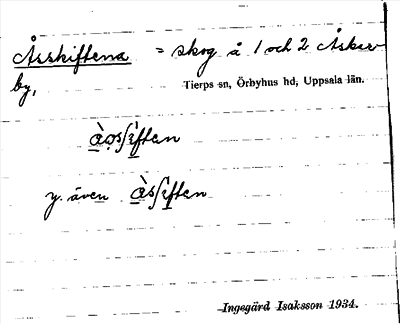 Åsskiftena = skog å 1 och 2 Åskar
by,
Tierps sn, Örbyhus hd, Uppsala län.
å̀ọsʃìften
y. även å̀sʃìften
Ingegärd Isaksson 1934.